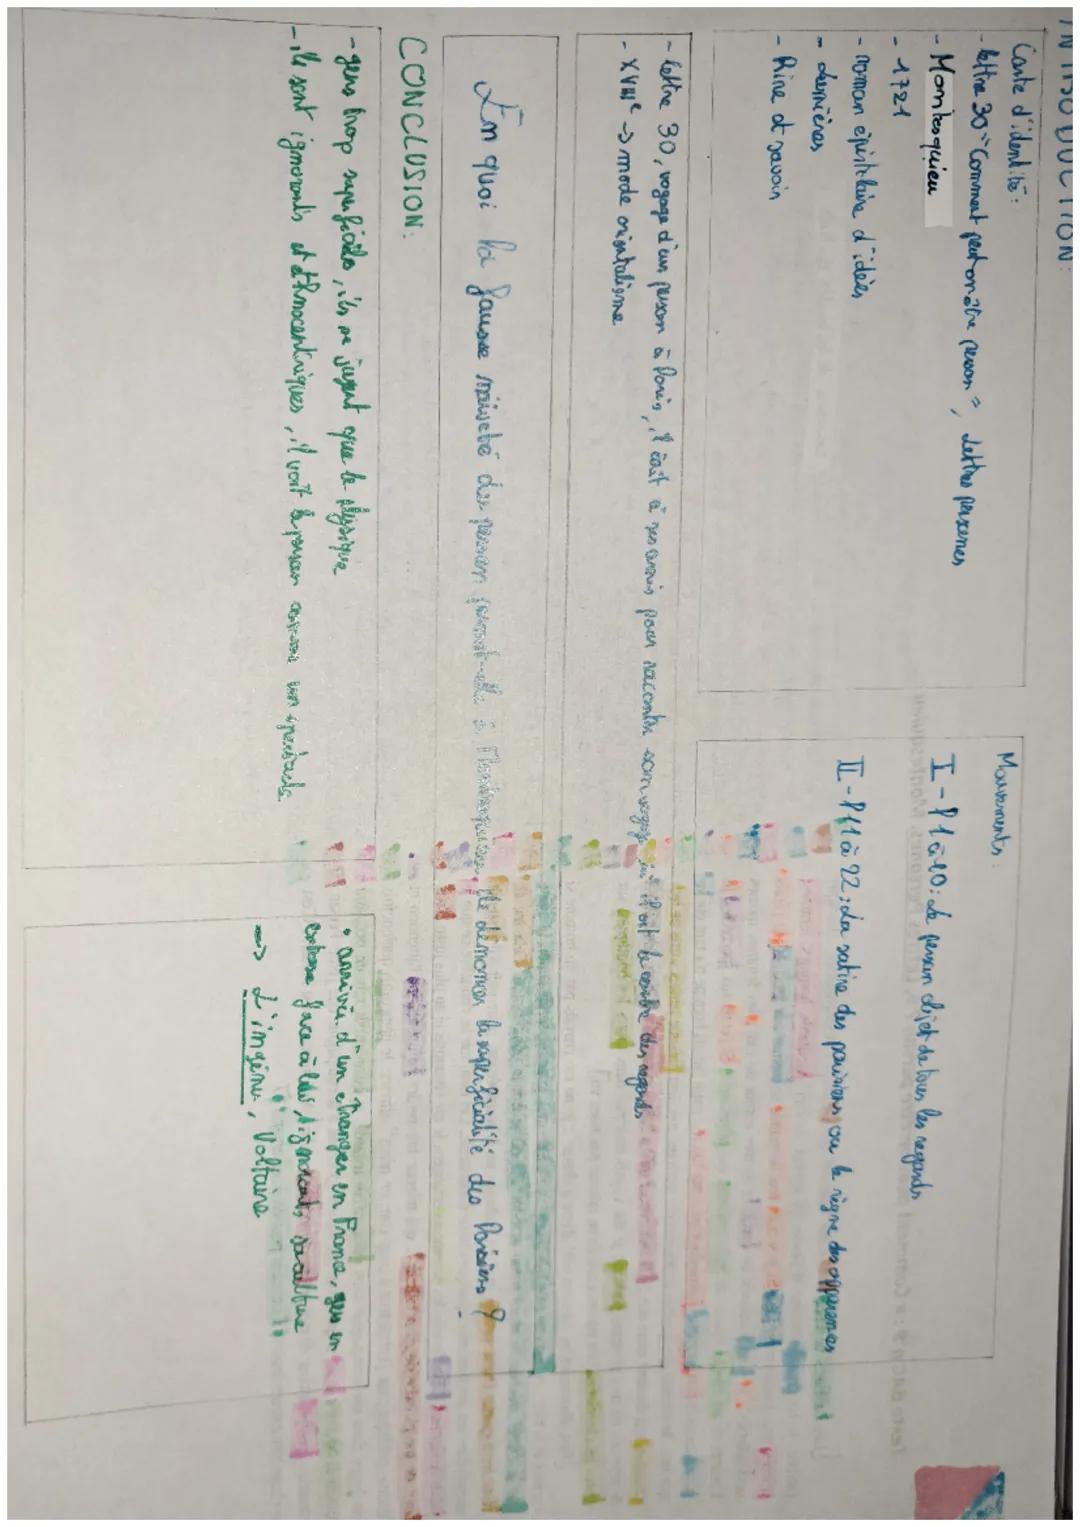 INTRODUCTION:
Carte d'identité:
- lettre 30 "Comment peut on être persan", Lettres persanes
- Montesquieu
- 1721
- roman épistolaire d'idées
- Lumières
- Rire et savoir
Mouvements:
I - l 1 à 10: Le persan objet de tous les regards
II - l 11 à 22: La satire des parisiens, ou le règne des apparences
- lettre 30, voyage d'un persan à Paris, il écrit à ses amis pour raconter son voyage, il est le centre des regards
- XVIIIe -> mode orientalisme
En quoi la fausse naïveté des persan permet-elle à Montesquieu de dénoncer la superficialité des Parisiens ?
CONCLUSION:
- gens trop superficiels, ils ne jugent que le physique
- ils sont ignorants et ethnocentriques, il voit le persan comme un spectacle
• arrivée d'un étranger en France, gens en
extase face à lui, ignorants sa culture
-> L'ingénu, Voltaire